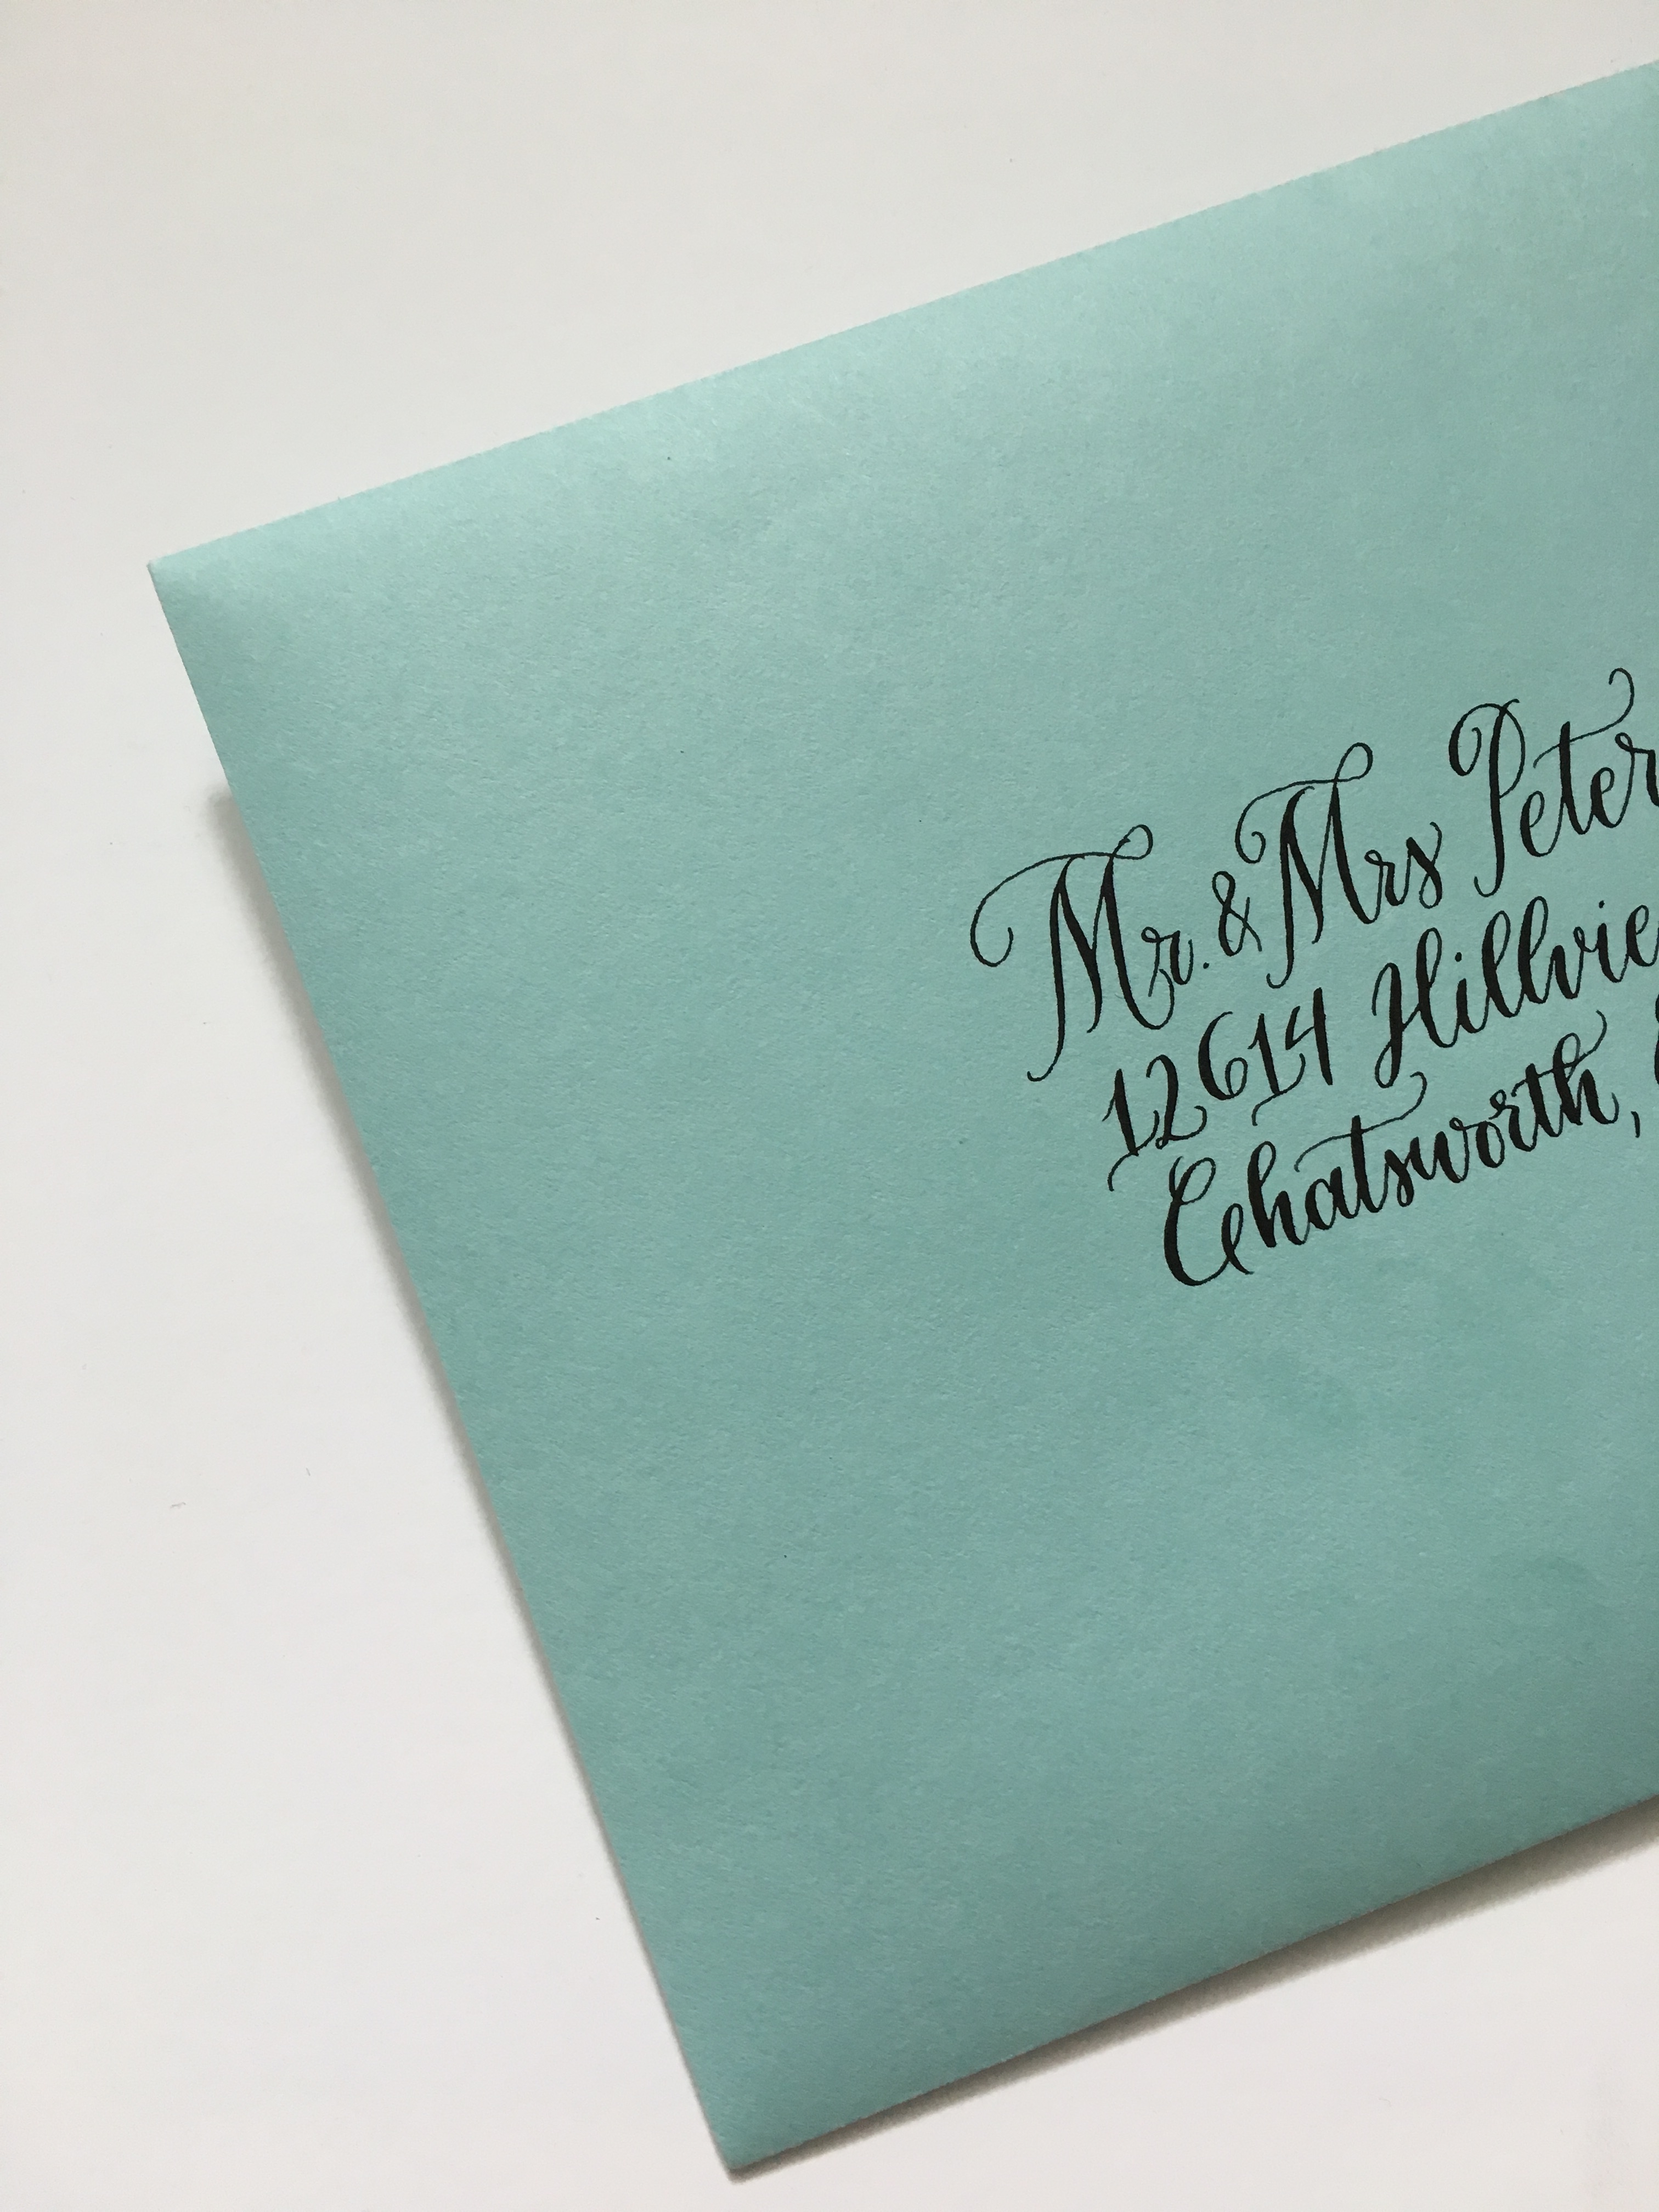 Mr. & Mrs Peter
12614 Hillvie
Chatsworth,